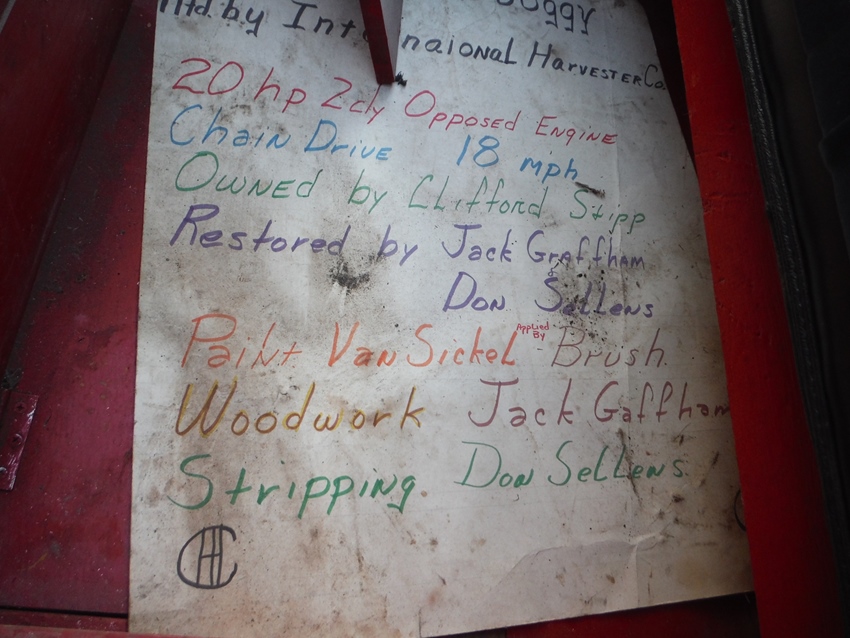 Buggy
Mfd by International Harvester Co.
20 hp 2cly Opposed Engine
Chain Drive 18 mph
Owned by Clifford Stipp
Restored by Jack Graffham
&
Don Sellens
Paint Van Sickel Applied By Brush
Woodwork Jack Gaffham
Stripping Don Sellens
IHC